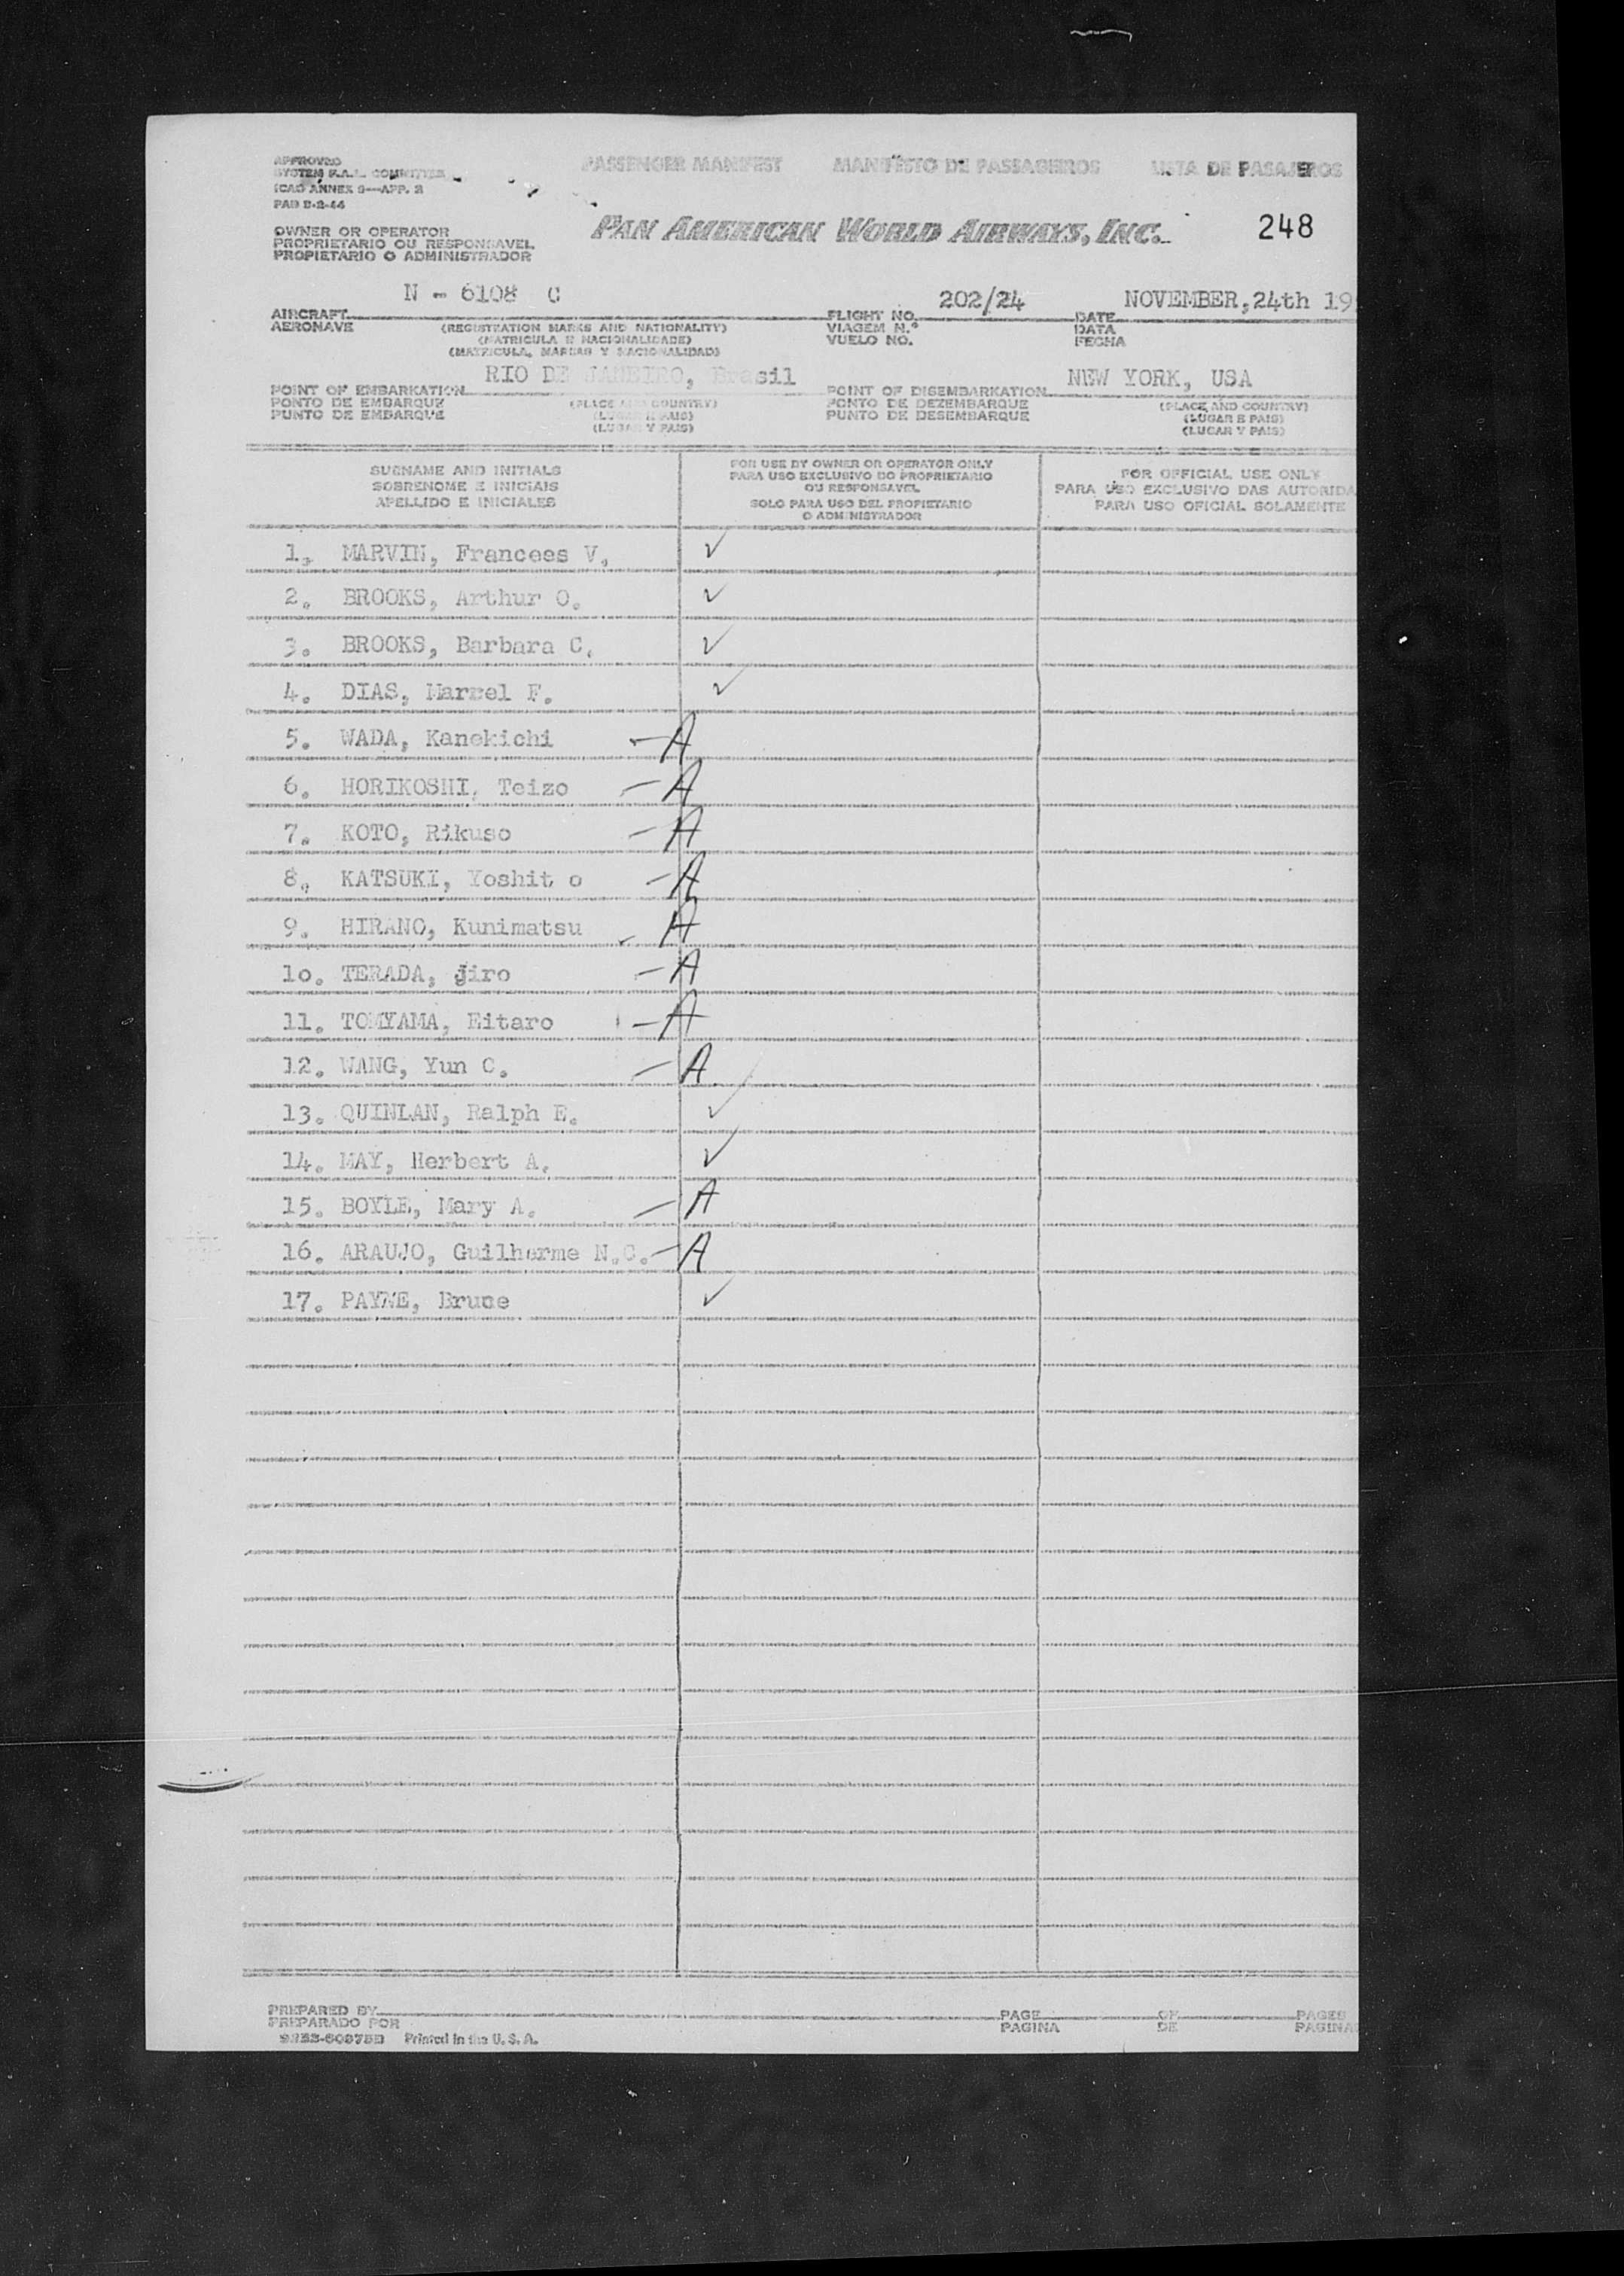 APPROVED
SYSTEM F.A.L. COMMITTEE
ICAO ANNEX 9—APP. 2
PASSENGER MANIFEST MANIFESTO DE PASSAGEIROS LISTA DE PASAJEROS
OWNER OR OPERATOR
PROPRIETARIO OU RESPONSAVEL
PROPIETARIO O ADMINISTRADOR
PAN AMERICAN WORLD AIRWAYS, INC.
248
N - 6108 C
202/24
NOVEMBER, 24th 19
AIRCRAFT
AERONAVE
(REGISTRATION MARKS AND NATIONALITY)
(MATRICULA E NACIONALIDADE)
(MATRICULA, MARCAS Y NACIONALIDAD)
FLIGHT NO.
VIAGEM N.º
VUELO NO.
DATE
DATA
FECHA
RIO DE JANEIRO, Brasil
NEW YORK, USA
POINT OF EMBARKATION
PONTO DE EMBARQUE
PUNTO DE EMBARQUE
(PLACE AND COUNTRY)
(LUGAR E PAIS)
(LUGAR Y PAIS)
POINT OF DISEMBARKATION
PONTO DE DEZEMBARQUE
PUNTO DE DESEMBARQUE
(PLACE AND COUNTRY)
(LUGAR E PAIS)
(LUGAR Y PAIS)
SURNAME AND INITIALS
SOBRENOME E INICIAIS
APELLIDO E INICIALES
FOR USE BY OWNER OR OPERATOR ONLY
PARA USO EXCLUSIVO DO PROPRIETARIO
OU RESPONSAVEL
SOLO PARA USO DEL PROPIETARIO
O ADMINISTRADOR
FOR OFFICIAL USE ONLY
PARA USO EXCLUSIVO DAS AUTORIDA
PARA USO OFICIAL SOLAMENTE
1. MARVIN, Francees V. ✓
2. BROOKS, Arthur O. ✓
3. BROOKS, Barbara C. ✓
4. DIAS, Marcel F. ✓
5. WADA, Kanekichi — A
6. HORIKOSHI, Teizo — A
7. KOTO, Rikuso — A
8. KATSUKI, Yoshit o — A
9. HIRANO, Kunimatsu A
10. TERADA, Jiro — A
11. TOMYAMA, Eitaro — A
12. WANG, Yun C. — A
13. QUINLAN, Ralph E. ✓
14. MAY, Herbert A. ✓
15. BOYLE, Mary A. — A
16. ARAUJO, Guilherme N.C. — A
17. PAYNE, Bruce ✓
PREPARED BY
PREPARADO POR
PAGE OF PAGES
PAGINA DE PAGINA
Printed in the U. S. A.